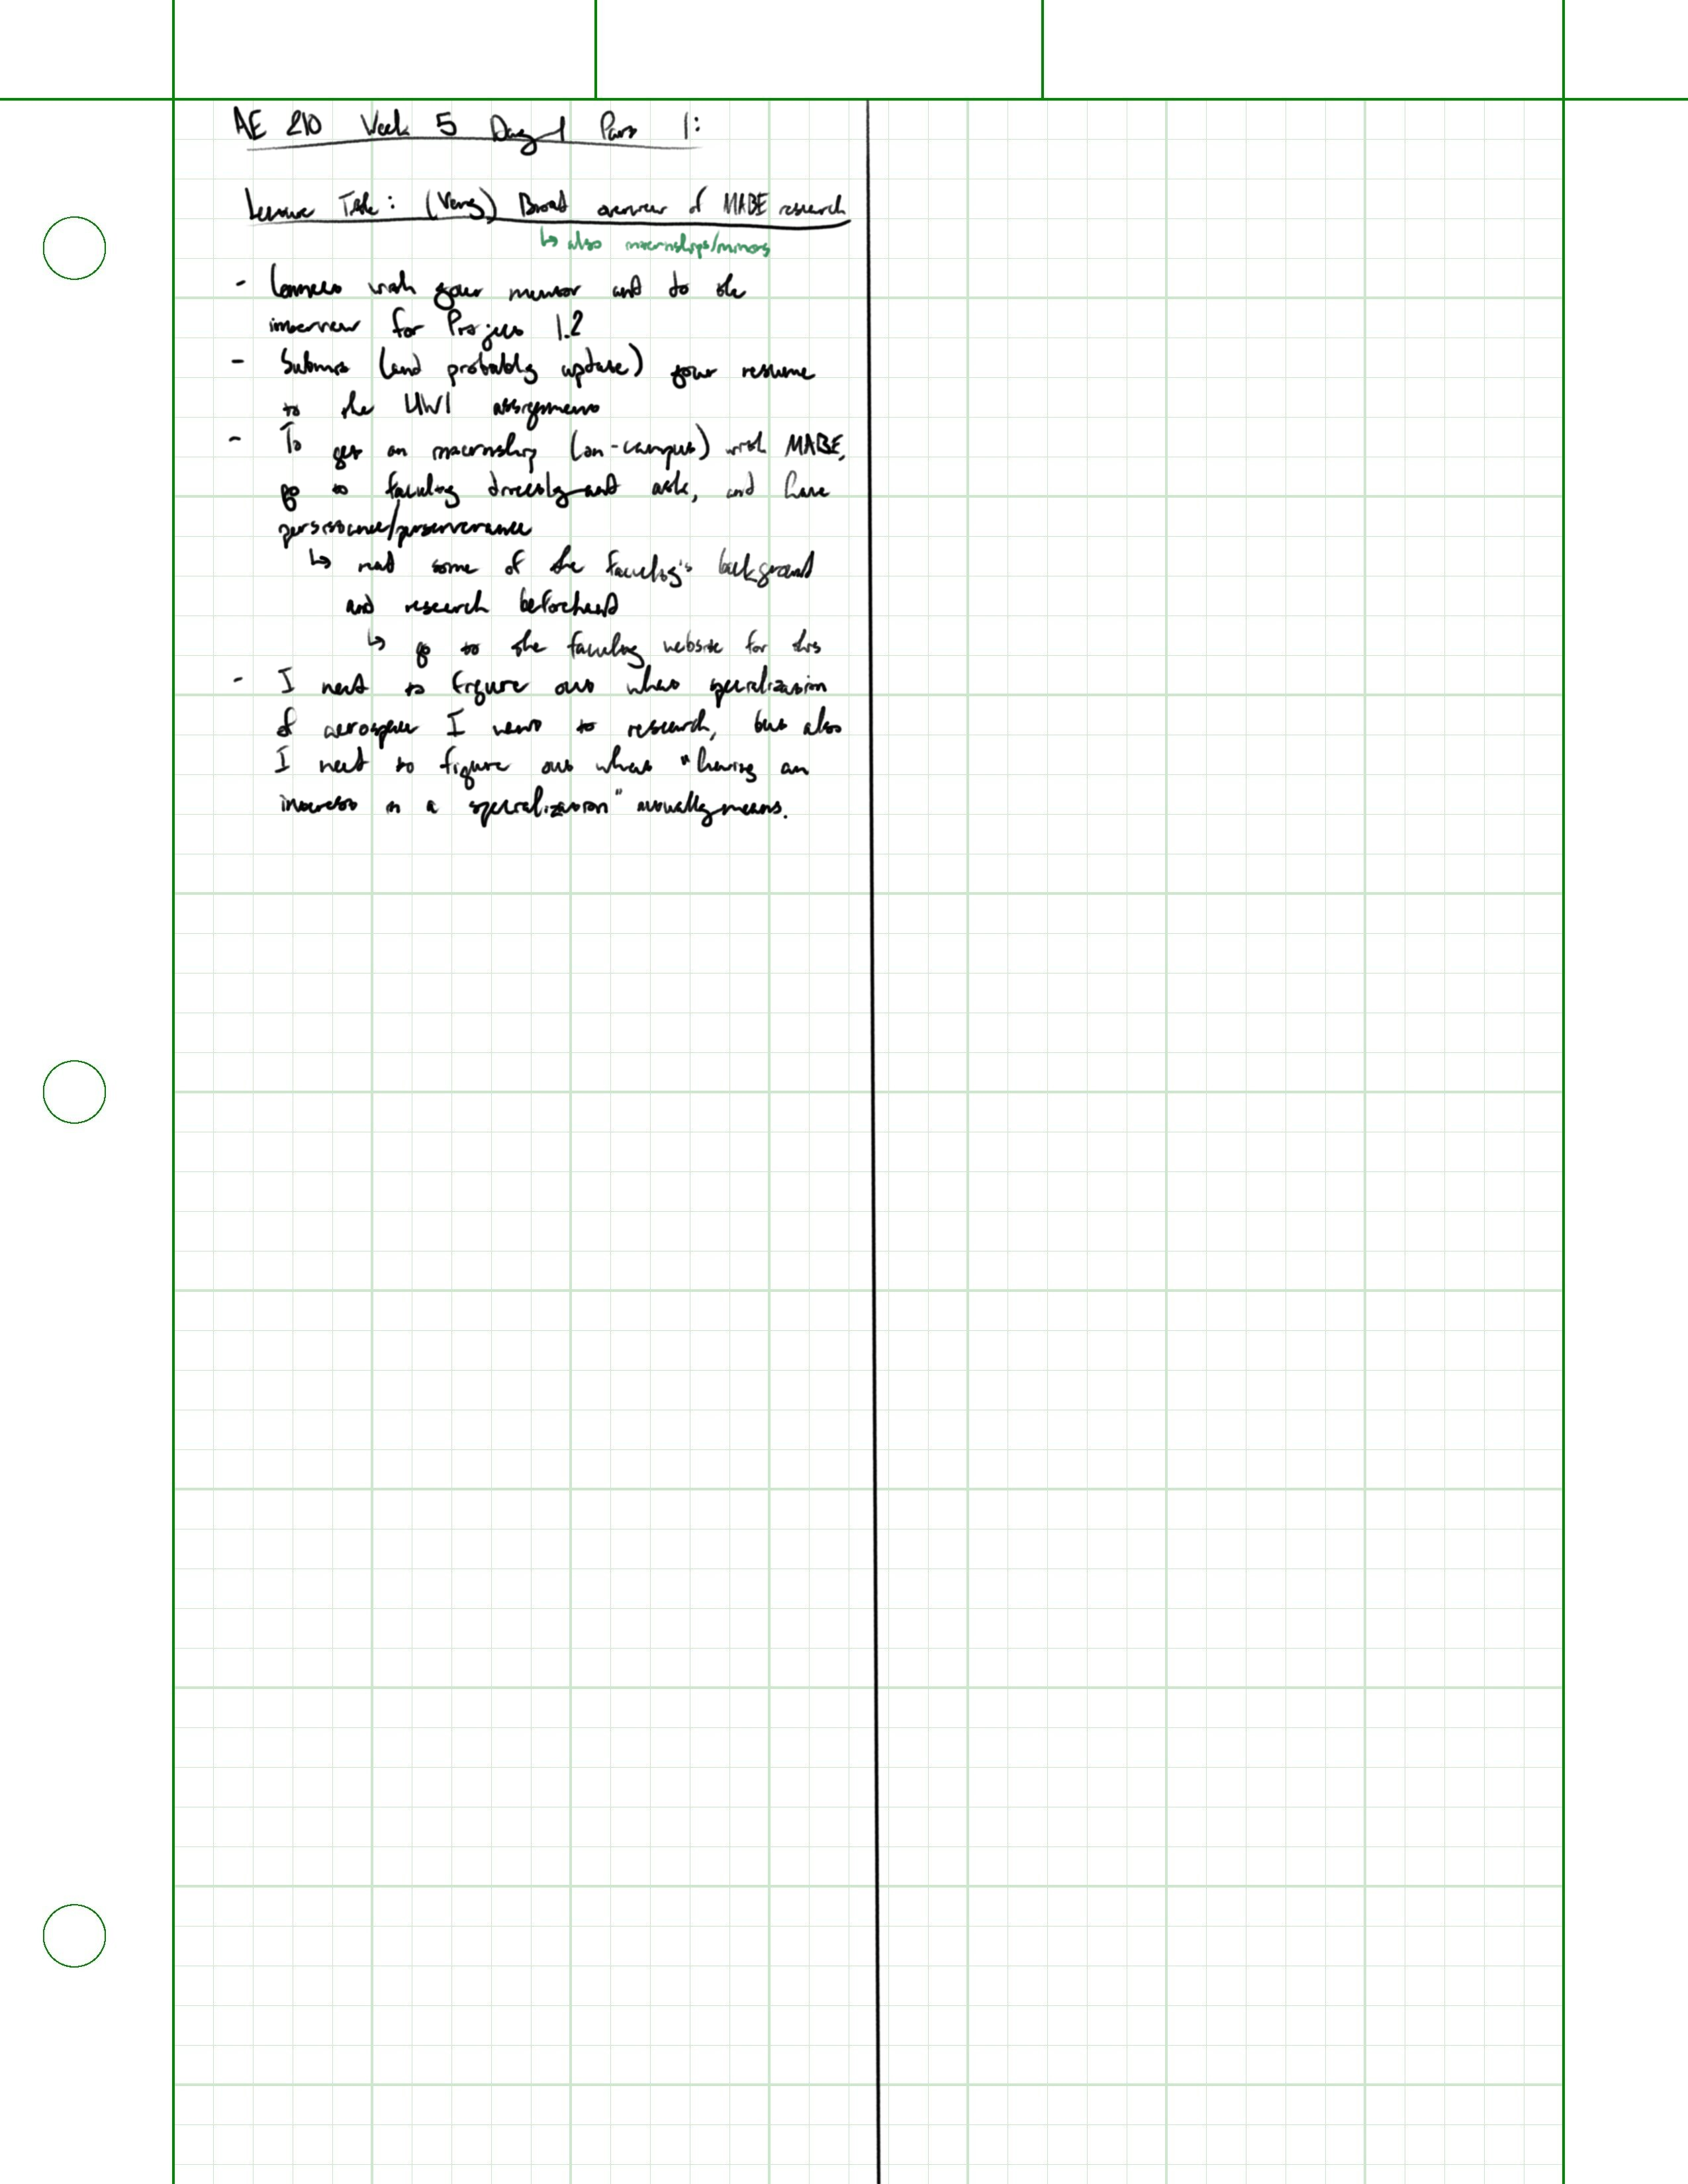 AE 210 Week 5 Day 1 Part 1:
Lecture Title: (Very) Broad overview of MABE research
↳ also internships/minors
- Connect with your mentor and do the
interview for Project 1.2
- Submit (and probably update) your resume
to the HW1 assignment
- To get an internship (on-campus) with MABE,
go to faculty directly and ask, and have
persistance/perserverance
↳ read some of the faculty's background
and research beforehand
↳ go to the faculty website for this
- I need to figure out what specialization
of aerospace I want to research, but also
I need to figure out what "having an
interest in a specialization" actually means.